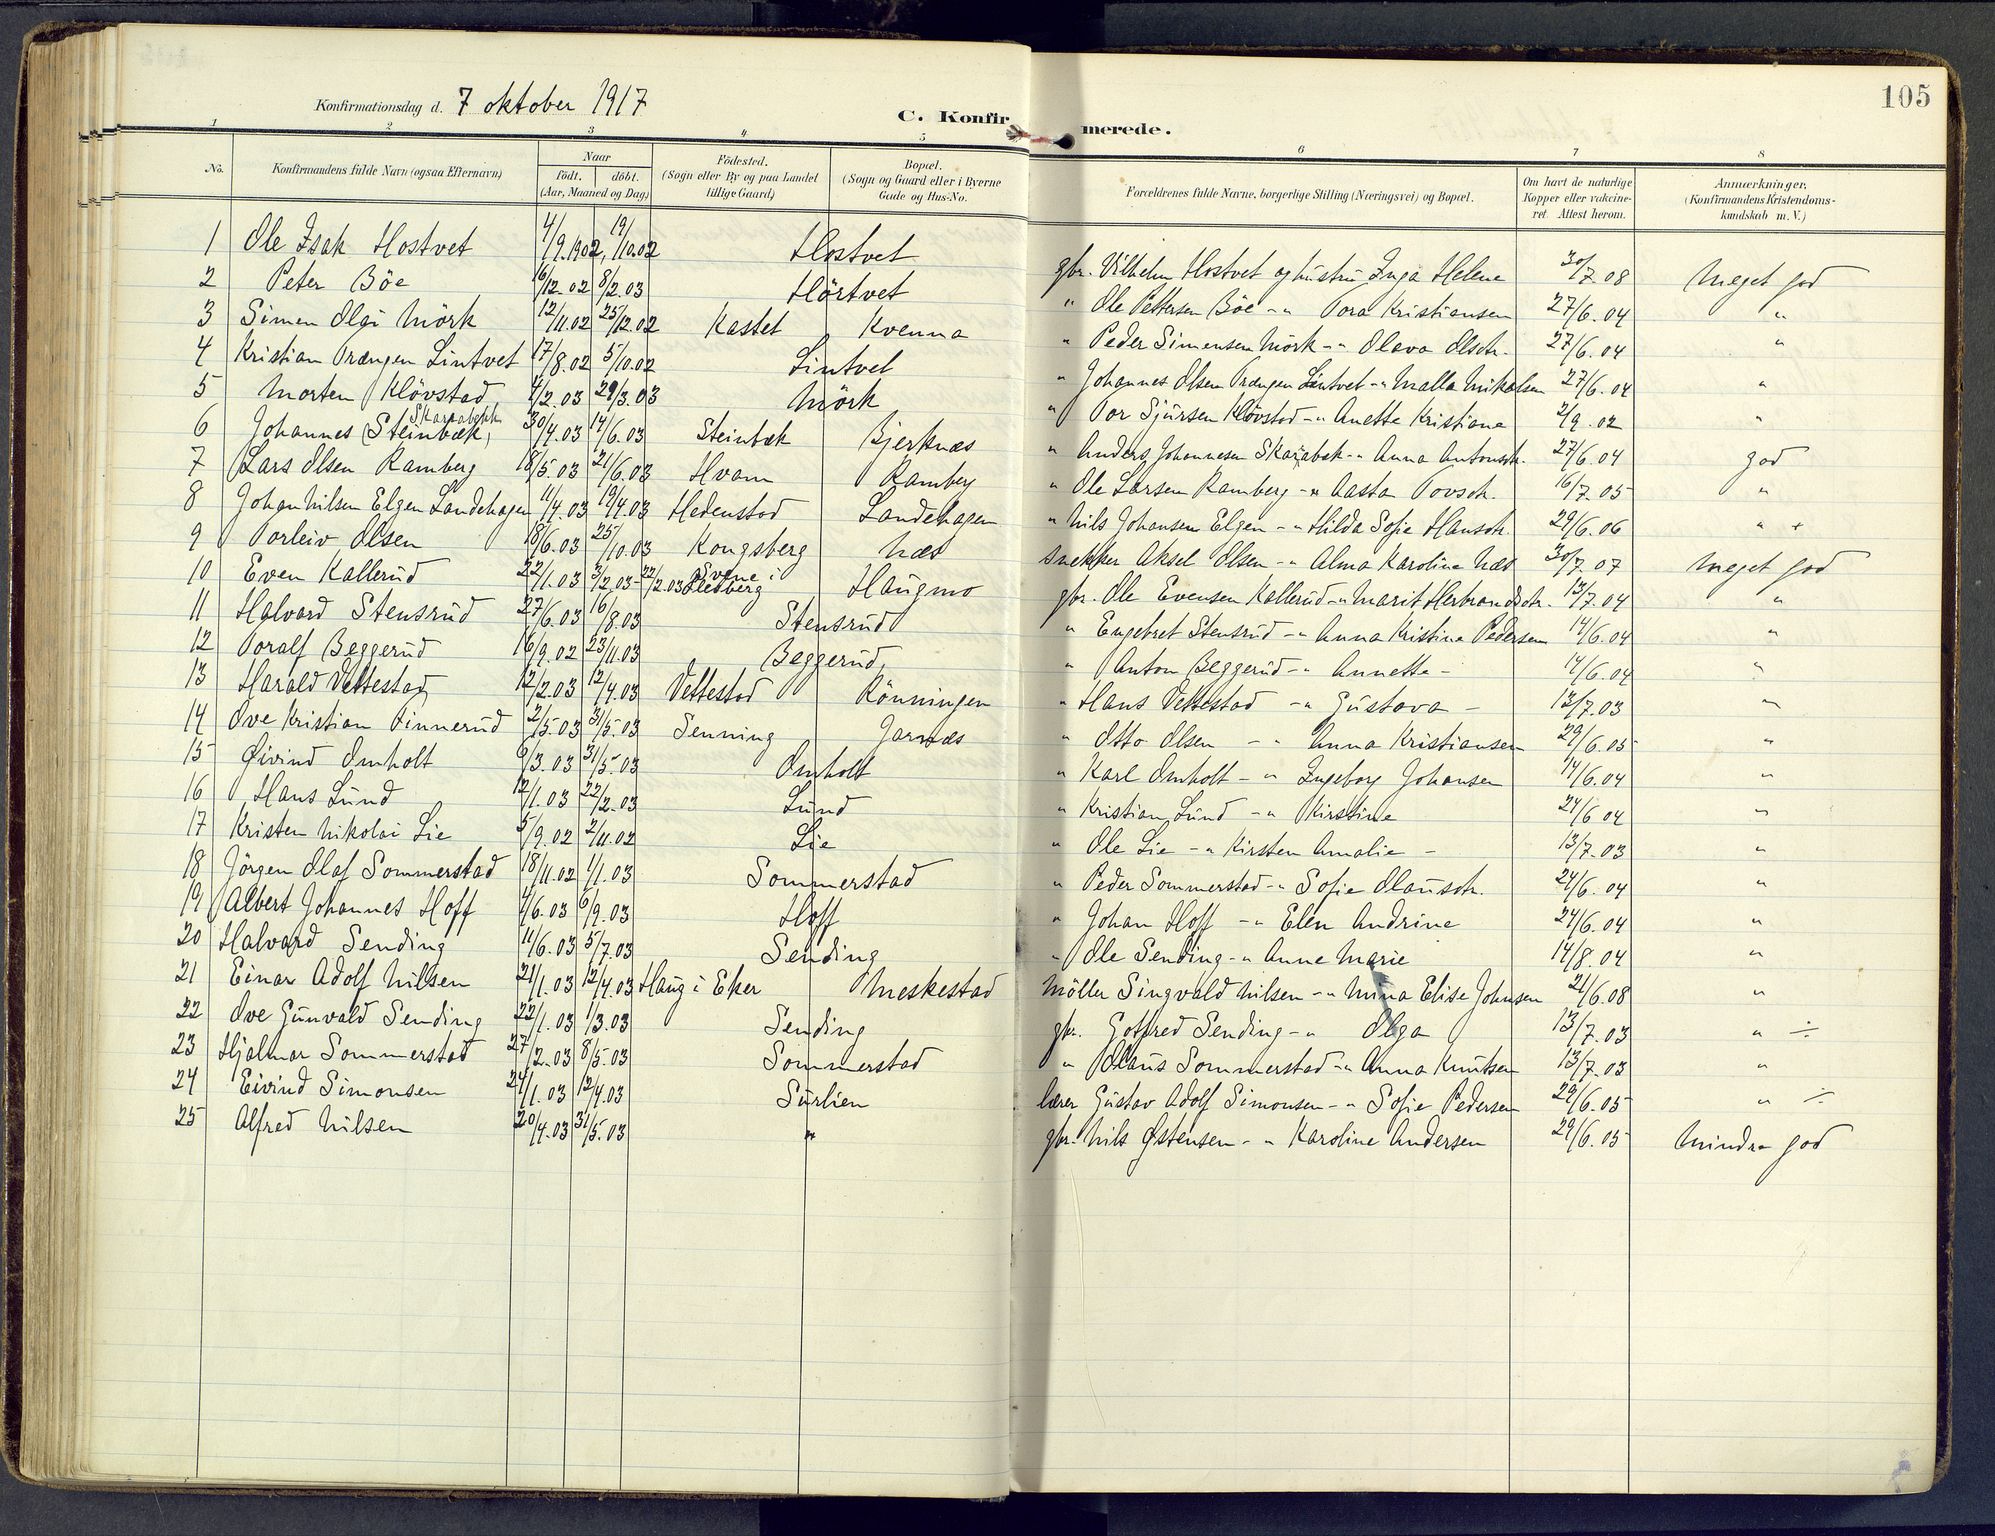 105
Konfirmationsdag d. 7 oktober 1917
C. Konfirmerede.
1 2 3 4 5 6 7 8
No. Konfirmandens fulde Navn (ogsaa Efternavn) Naar födt. döbt. (Aar, Maaned og Dag) Födested. (Sogn eller By og paa Landet tillige Gaard) Bopæl. (Sogn og Gaard eller i Byerne Gade og Hus-No. Forældrenes fulde Navne, borgerlige Stilling (Næringsvei) og Bopæl. Om havt de naturlige Kopper eller vakcineret. Attest herom. Anmærkninger. (Konfirmandens Kristendomskundskab m. V.)
1 Ole Isak Hostvet 4/9.1902 19/10.02 Hostvet gbr. Vilhelm Hostvet og hustru Inga Helene 30/7 08 Meget god
2 Peter Böe 16/12 02 8/2.03 Hörtvet " Ole Pettersen Böe -"- Tora Kristiansen 27/6.04 "
3 Simen Olai Mörk 12/11.02 25/12.02 Kastet Kvenna " Peder Simensen Mörk -"- Olava Olsdtr. 27/6.04 "
4 Kristian Prængen Lintvet 17/8.02 5/10.02 Lintvet " Johannes Olsen Prængen Lintvet -"- Malla Nikolsen 27/6.04 "
5 Morten Klövstad 4/2.03 29/3.03 Mörk " Tor Sjursen Klövstad -"- Anette Kristiane 2/9.02 "
6 Johannes Steinbæk, Skarabekk 30/4.03 14/6.03 Steinbæk Bjerknæs " Anders Johannesen Skarabek -"- Anna Antonsdtr. 27/6.04 god
7 Lars Olsen Ramberg 18/5.03 21/6.03 Hvam Ramberg " Ole Larsen Ramberg -"- Aasta Tovsdtr. 16/7.05 "
8 Johan Nilsen Elgen Landehagen 11/4.03 19/4.03 Hedenstad Landehagen " Nils Johansen Elgen -"- Hilda Sofie Hansdtr. 29/6.06 " +
9 Torleiv Olsen 18/6.03 25/10.03 Kongsberg Næs snekker Aksel Olsen -"- Alma Karoline Næs 30/7.07 Meget god
10 Even Kallerud 22/1.03 3/2.03 - 22/2.03 Svene i Flesberg Haugmo gbr. Ole Evensen Kallerud -"- Marit Herbrandsdtr. 13/7.04 "
11 Halvard Stensrud 27/6.03 16/8.03 Stensrud " Engebret Stensrud -"- Anna Kristine Pedersen 14/6.04 "
12 Toralf Beggerud 16/9.02 23/11.03 Beggerud " Anton Beggerud -"- Annette - 14/6.04 "
13 Harald Vettestad 12/2.03 12/4.03 Vettestad Rönningen " Hans Vettestad -"- Gustava - 13/7.03 "
14 Ove Kristian Finnerud 2/5.03 31/5.03 Senning Jarnæs " Otto Olsen -"- Anna Kristiansen 29/6.05 "
15 Øivind Omholt 6/3.03 31/5.03 Omholt " Karl Omholt -"- Ingeborg Johansen 14/6.04 "
16 Hans Lund 12/1.03 22/2.03 Lund " Kristian Lund -"- Kirstine 24/6 04 "
17 Kristen Nikolai Lie 5/9.02 2/11.02 Lie " Ole Lie -"- Kirsten Amalie - 13/7.03 "
18 Jörgen Olaf Sommerstad 18/11.02 1/1.03 Sommerstad " Peder Sommerstad -"- Sofie Olausdtr. 24/6.04 "
19 Albert Johannes Hoff 4/6.03 6/9.03 Hoff " Johan Hoff -"- Elen Andrine 24/6.04 "
20 Halvard Sending 11/6.03 5/7.03 Sending " Ole Sending -"- Anne Marie 14/8.04 "
21 Einar Adolf Nilsen 21/1.03 12/4.03 Haug i Eker Meskestad Möller Singvald Nilsen -"- Mina Elise Johnsen 21/6.08 "
22 Ove Gunvald Sending 22/1.03 1/3.03 Sending gbr. Gotfred Sending -"- Olga 13/7.03 " ÷
23 Hjalmar Sommerstad 27/2.03 8/5.03 Sommerstad " Olaus Sommerstad -"- Anna Knutsen 13/7.03 "
24 Eivind Simonsen 24/1.03 12/4.03 Surlien lærer Gustav Adolf Simonsen -"- Sofie Pedersen 29/6.05 " ÷
25 Alfred Nilsen 20/4.03 31/5.03 " gbr. Nils Østensen -"- Karoline Andersen 29/6.05 Mindre god